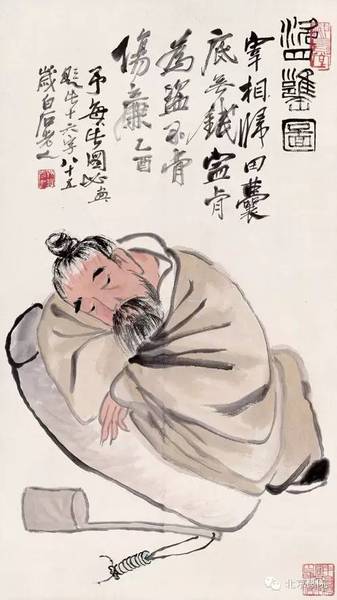 盜甕圖
宰相歸田囊
底无錢寧肯
為盜不肯
傷廉 乙酉
予每作圖必
題此十六字八十五
歲白石老人
北京